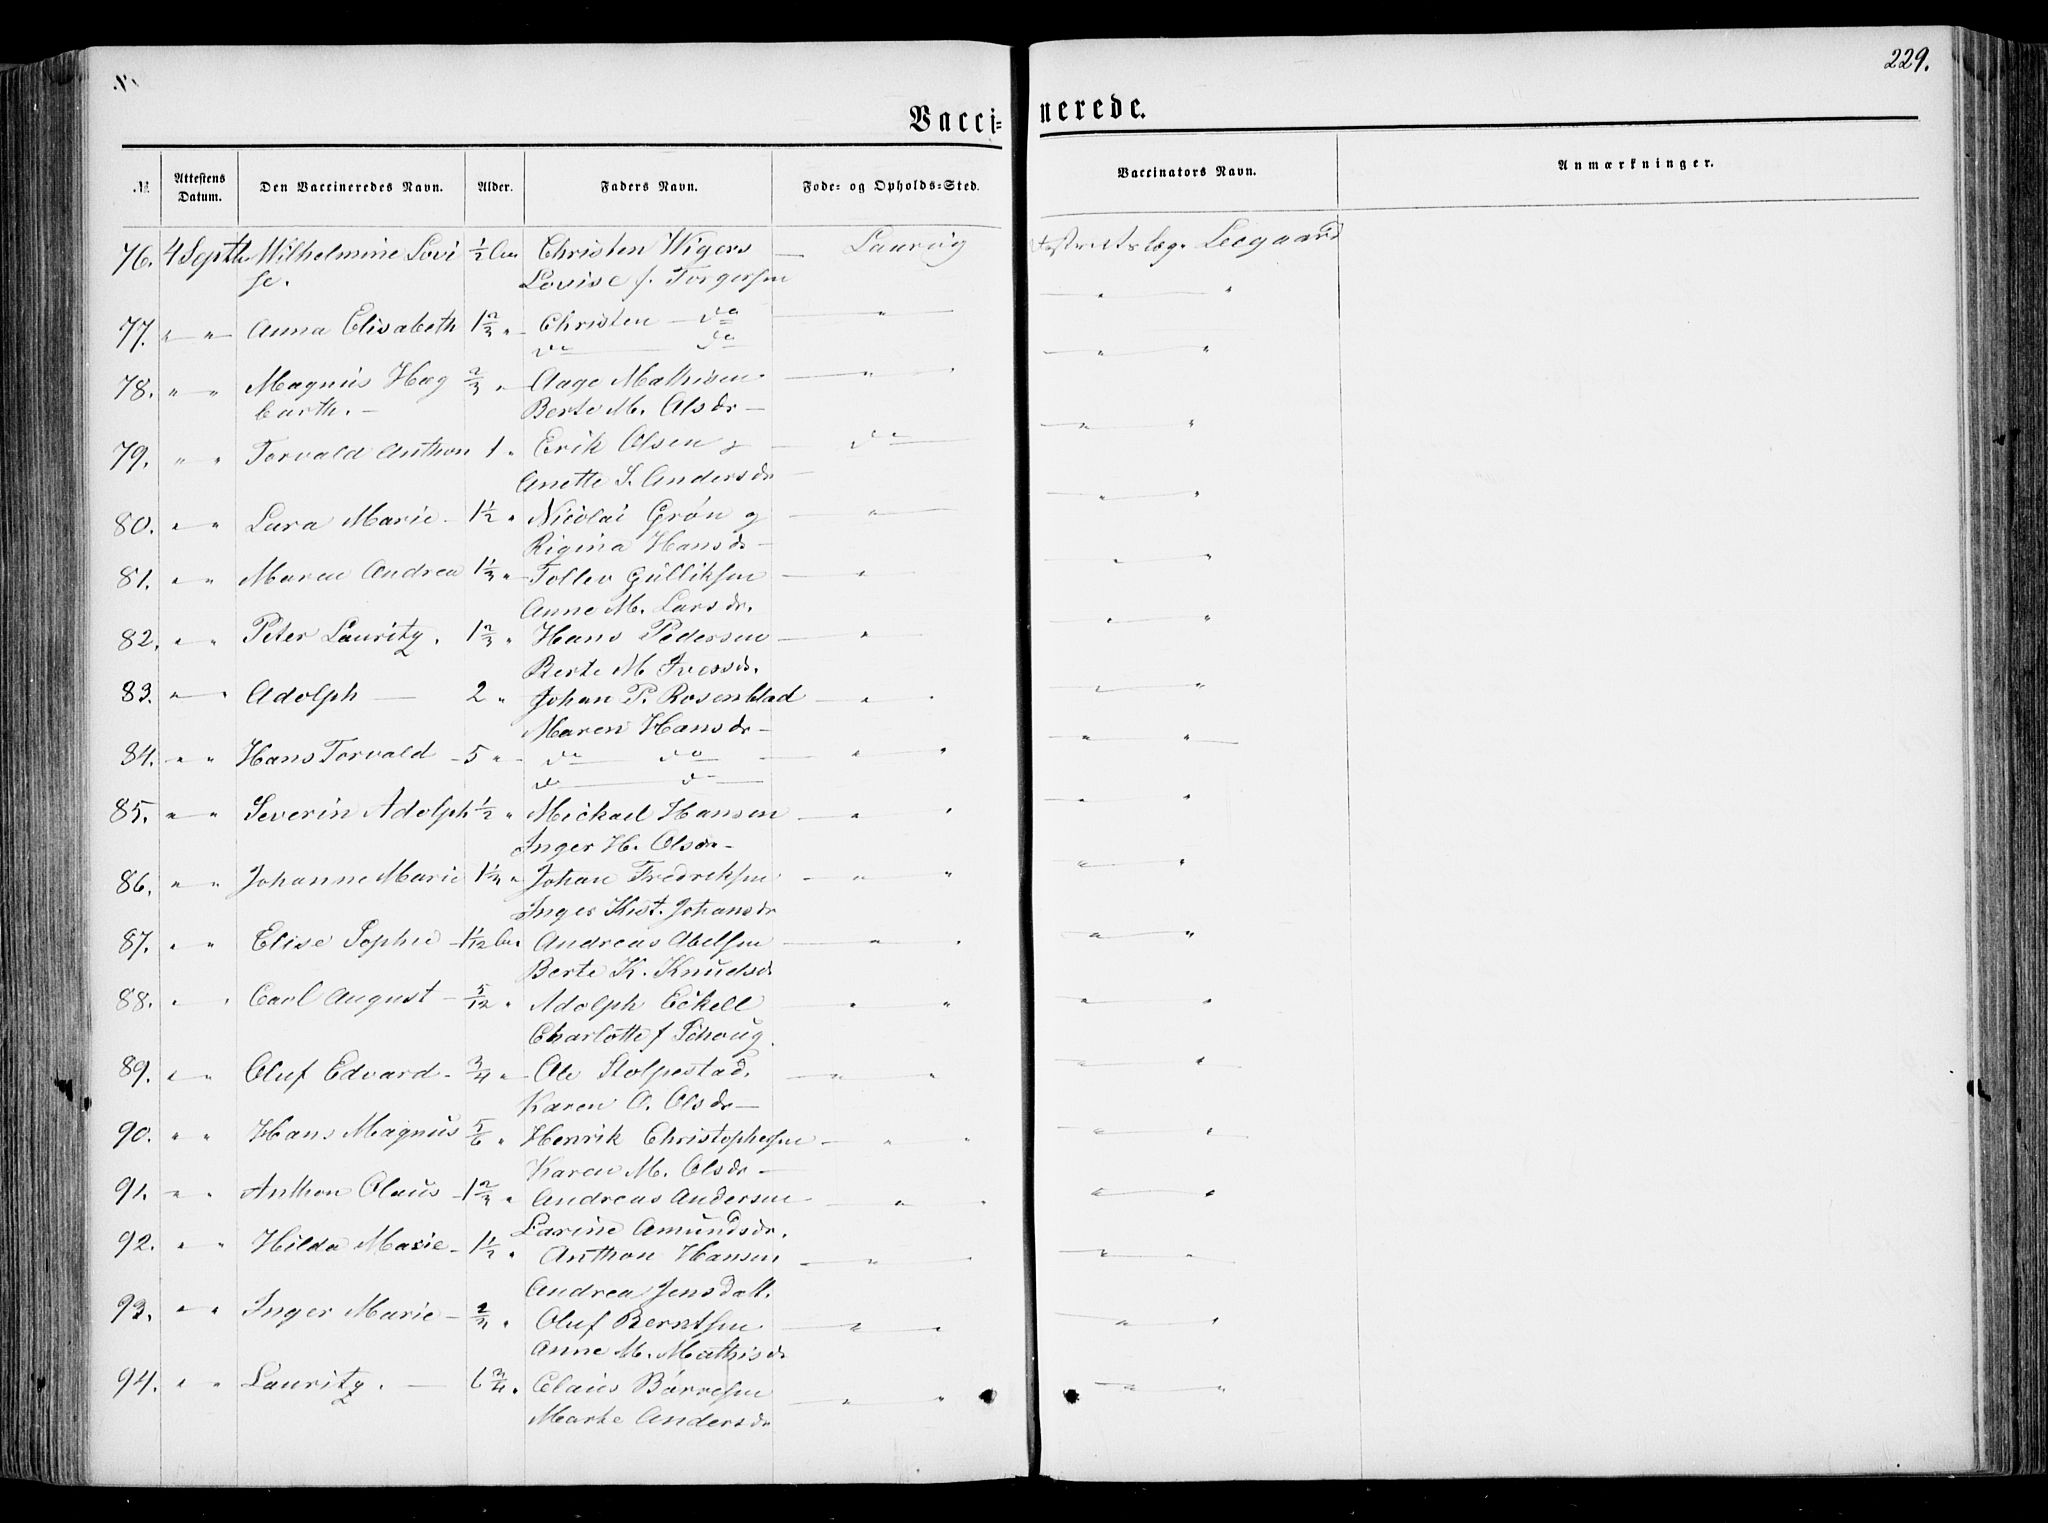 229.
Vacci=
nerede.
№ Attestens Datum. Den Vaccineredes Navn. Alder. Faders Navn. Føde= og Opholds=Sted. Vaccinators Navn. Anmærkninger.
76. 4 Septb. Wilhelmine Lovi ½ Christen Wigers — Laurvig Leegaard
se. Lovise f. Torgersen
77. " " Anna Elisabeth 1⅔ " Christen — do "
do do
78. " " Magnus Hag ⅔ " Aage Mathisen "
barth. — Berte M. Olsdr —
79. " " Torvald Anthon 1 " Erik Olsen & do
Anette S. Andersdr
80. " " Lara Marie 1½ " Nicolai Grøn & "
Rigina Hansdr —
81. " " Maren Andrea 1⅓ " Tollev Gulliksen "
Anne M. Larsdr.
82. " " Peter Lauritz. 1⅔ " Hans Pedersen "
Berte M. Iversdr.
83. " " Adolph — 2 " Johan P. Rosenblad "
Maren Hansdr —
84. " " Hans Torvald — 5 " do do " "
do do
85. " " Severin Adolph ½ " Mickael Hansen " "
Inger H. Olsdr —
86. " " Johanne Marie 1¼ " Johan Fredriksen " "
Inger Krist. Johansdr
87. " " Elise Sophie — 1 1/12 Andreas Abelsen " "
Berte K. Knudsdr
88. " " Carl August — 5/12 " Adolph Eckell " "
Charlotte f Schoug.
89. " " Oluf Edvard — ¾ " Ole Stolpestad. " "
Karen O. Olsdr —
90. " " Hans Magnus 5/6 " Henrik Christophersen " "
Karen M. Olsdr —
91. " " Anthon Olaus — 1⅔ " Andreas Andersen " "
Larine Amundsdr.
92. " " Hilda Marie — 1½ " Anthon Hansen "
Andrea Jensdatt.
93. " " Inger Marie — " Oluf Berntsen " "
Anne M. Mathisdr
94. " " Lauritz. — 6¾ " Claus Børresen " "
Marte Andersdr